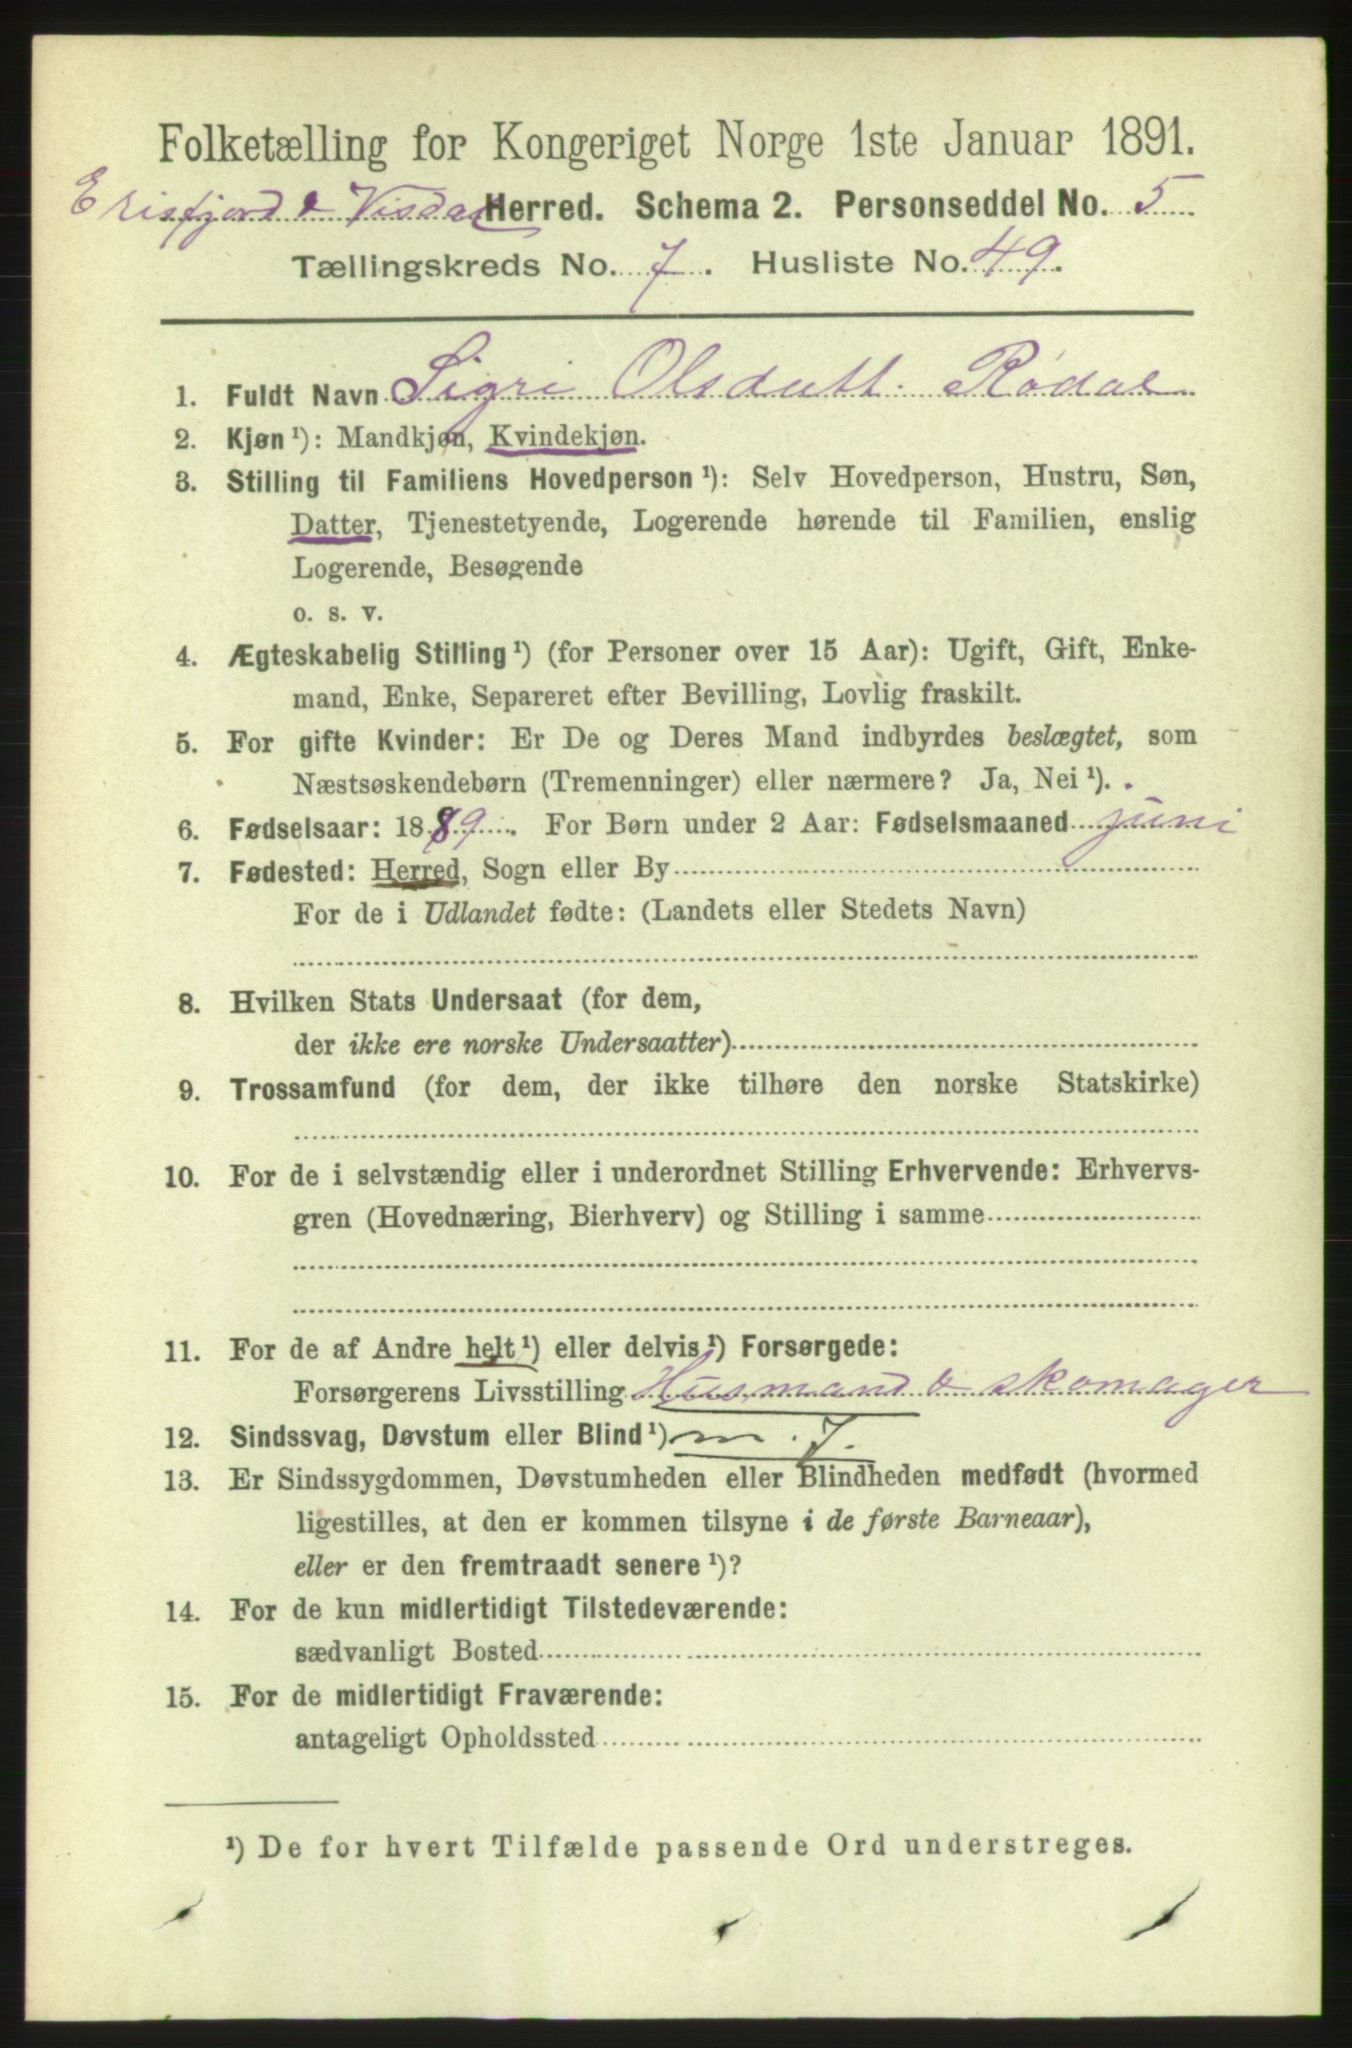 Folketælling for Kongeriget Norge 1ste Januar 1891.
Erisfjord & Visdal Herred. Schema 2. Personseddel No. 5
Tællingskreds No. 7. Husliste No. 49.
1. Fuldt Navn Sigri Olsdatt. Rødal
2. Kjøn ¹): Mandkjøn, Kvindekjøn.
3. Stilling til Familiens Hovedperson ¹): Selv Hovedperson, Hustru, Søn,
Datter, Tjenestetyende, Logerende hørende til Familien, enslig
Logerende, Besøgende
o. s. v.
4. Ægteskabelig Stilling ¹) (for Personer over 15 Aar): Ugift, Gift, Enke-
mand, Enke, Separeret efter Bevilling, Lovlig fraskilt.
5. For gifte Kvinder: Er De og Deres Mand indbyrdes beslægtet, som
Næstsøskendebørn (Tremenninger) eller nærmere? Ja, Nei ¹).
6. Fødselsaar: 1889. For Børn under 2 Aar: Fødselsmaaned juni
7. Fødested: Herred, Sogn eller By
For de i Udlandet fødte: (Landets eller Stedets Navn)
8. Hvilken Stats Undersaat (for dem,
der ikke ere norske Undersaatter)
9. Trossamfund (for dem, der ikke tilhøre den norske Statskirke)
10. For de i selvstændig eller i underordnet Stilling Erhvervende: Erhvervs-
gren (Hovednæring, Bierhverv) og Stilling i samme
11. For de af Andre helt ¹) eller delvis ¹) Forsørgede:
Forsørgerens Livsstilling Husmand & skomager
12. Sindssvag, Døvstum eller Blind ¹)
13. Er Sindssygdommen, Døvstumheden eller Blindheden medfødt (hvormed
ligestilles, at den er kommen tilsyne i de første Barneaar),
eller er den fremtraadt senere ¹)?
14. For de kun midlertidigt Tilstedeværende:
sædvanligt Bosted
15. For de midlertidigt Fraværende:
antageligt Opholdssted
¹) De for hvert Tilfælde passende Ord understreges.